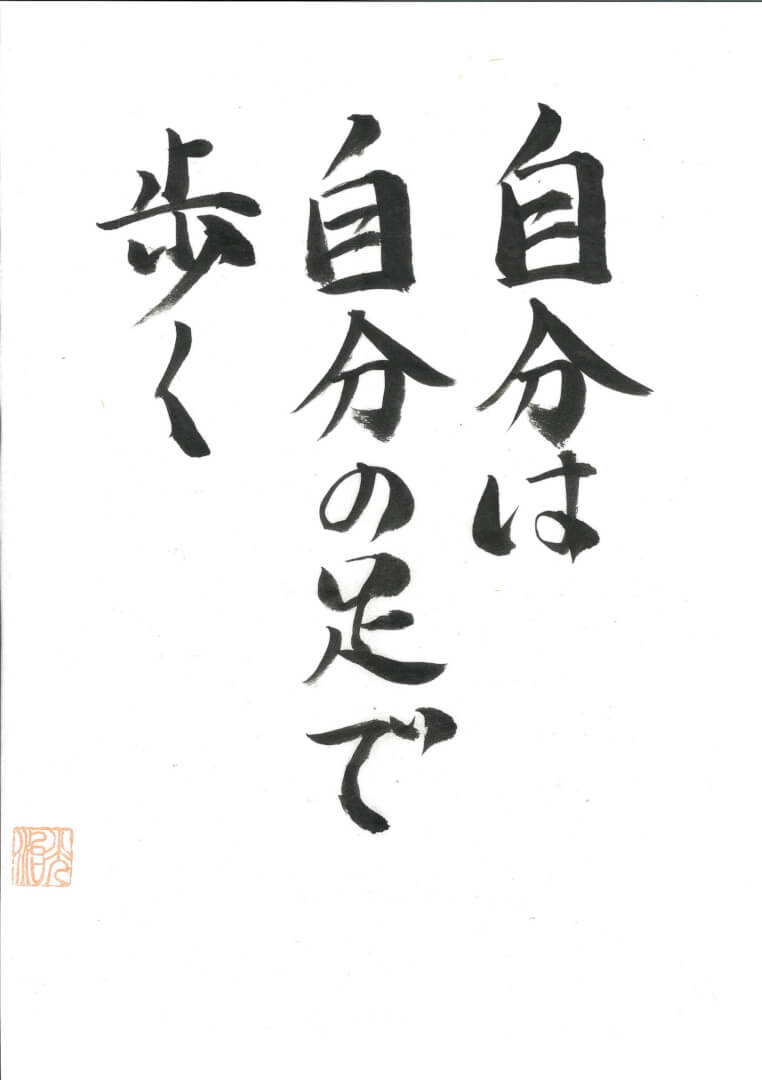 自分は
自分の足で
歩く